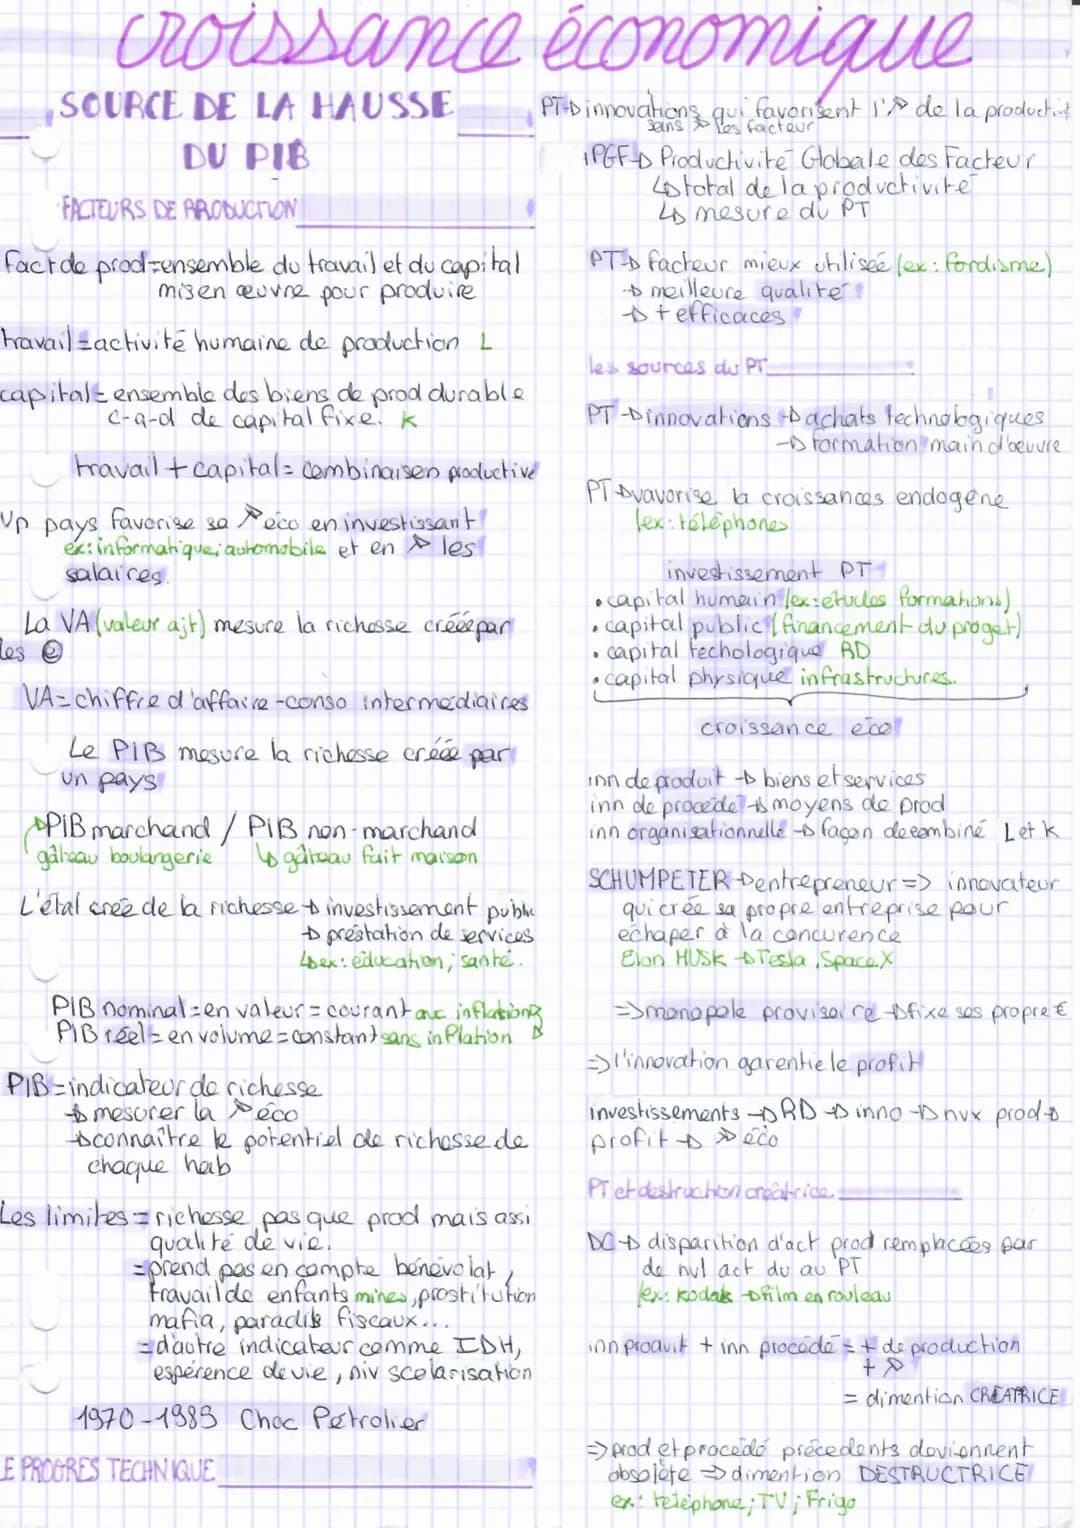 croissance économique
SOURCE DE LA HAUSSE
DU PIB
FACTEURS DE PRODUCTION
fact de prod = ensemble du travail et du capital
mis en œuvre pour produire
travail = activité humaine de production L
capital = ensemble des biens de prod durable
c-a-d de capital fixe. K
travail + capital = combinaison productive
Un pays favorise sa ↗ éco en investissant
ex: informatique; automobile et en ↗ les
salaires.
La VA (valeur ajt) mesure la richesse créée par
les e
VA = chiffre d'affaire - conso intermédiaires
Le PIB mesure la richesse créée par
un pays
PIB marchand / PIB non-marchand
gâteau boulangerie ↳ gâteau fait maison
L'état crée de la richesse → investissement public
→ préstation de services
↳ ex: éducation; santé.
PIB nominal = en valeur = courant avc inflation
PIB réel = en volume = constant sans inflation
PIB = indicateur de richesse
→ mesurer la ↗ éco
→ connaître le potentiel de richesse de
chaque hab
Les limites = richesse pas que prod mais assi
qualité de vie.
= prend pas en compte bénévolat,
travail de enfants mines, prostitution
mafia, paradis fiscaux...
= d'autre indicateur comme IDH,
espérence de vie, niv scolarisation
1970-1989 Choc Pétrolier
LE PROGRES TECHNIQUE
PT → innovations qui favorisent l'↗ de la productivité
sans ↗ les facteur
PGF → Productivité Globale des Facteur
↳ total de la productivité
↳ mesure du PT
PT → facteur mieux utilisée (ex: fordisme)
→ meilleure qualité
→ + efficaces
les sources du PT
PT → innovations → achats technologiques
→ formation main d'œuvre
PT → vavorise la croissances endogène
(ex: téléphones
investissement PT
• capital humain (ex: etudes formations)
• capital public (financement du proget)
• capital techologique RD
• capital physique infrastructures.
croissance éco
inn de produit → biens et services
inn de procédé → moyens de prod
inn organisationnelle → façon de combiné L et K
SCHUMPETER → entrepreneur => innovateur
qui crée sa propre entreprise pour
échaper à la concurence
Elon MUSK → Tesla, Space X
=> monopole provisoire → fixe ses propre €
=> l'innovation garentie le profit
investissements → RD → inno → nvx prod →
profit → ↗ éco
PT et destruction créatrice.
DC → disparition d'act prod remplacées par
de nvl act du au PT
(ex: kodak → film en rouleau
inn produit + inn procédé = + de production
+ ↗
= dimention CREATRICE
=> prod et procédé précedents deviennent
obsolète => dimention DESTRUCTRICE
ex: téléphone; TV; Frigo